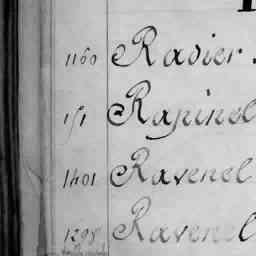 1160 Radier.
151 Rapinel
1401 Ravenel
1298 Ravenel